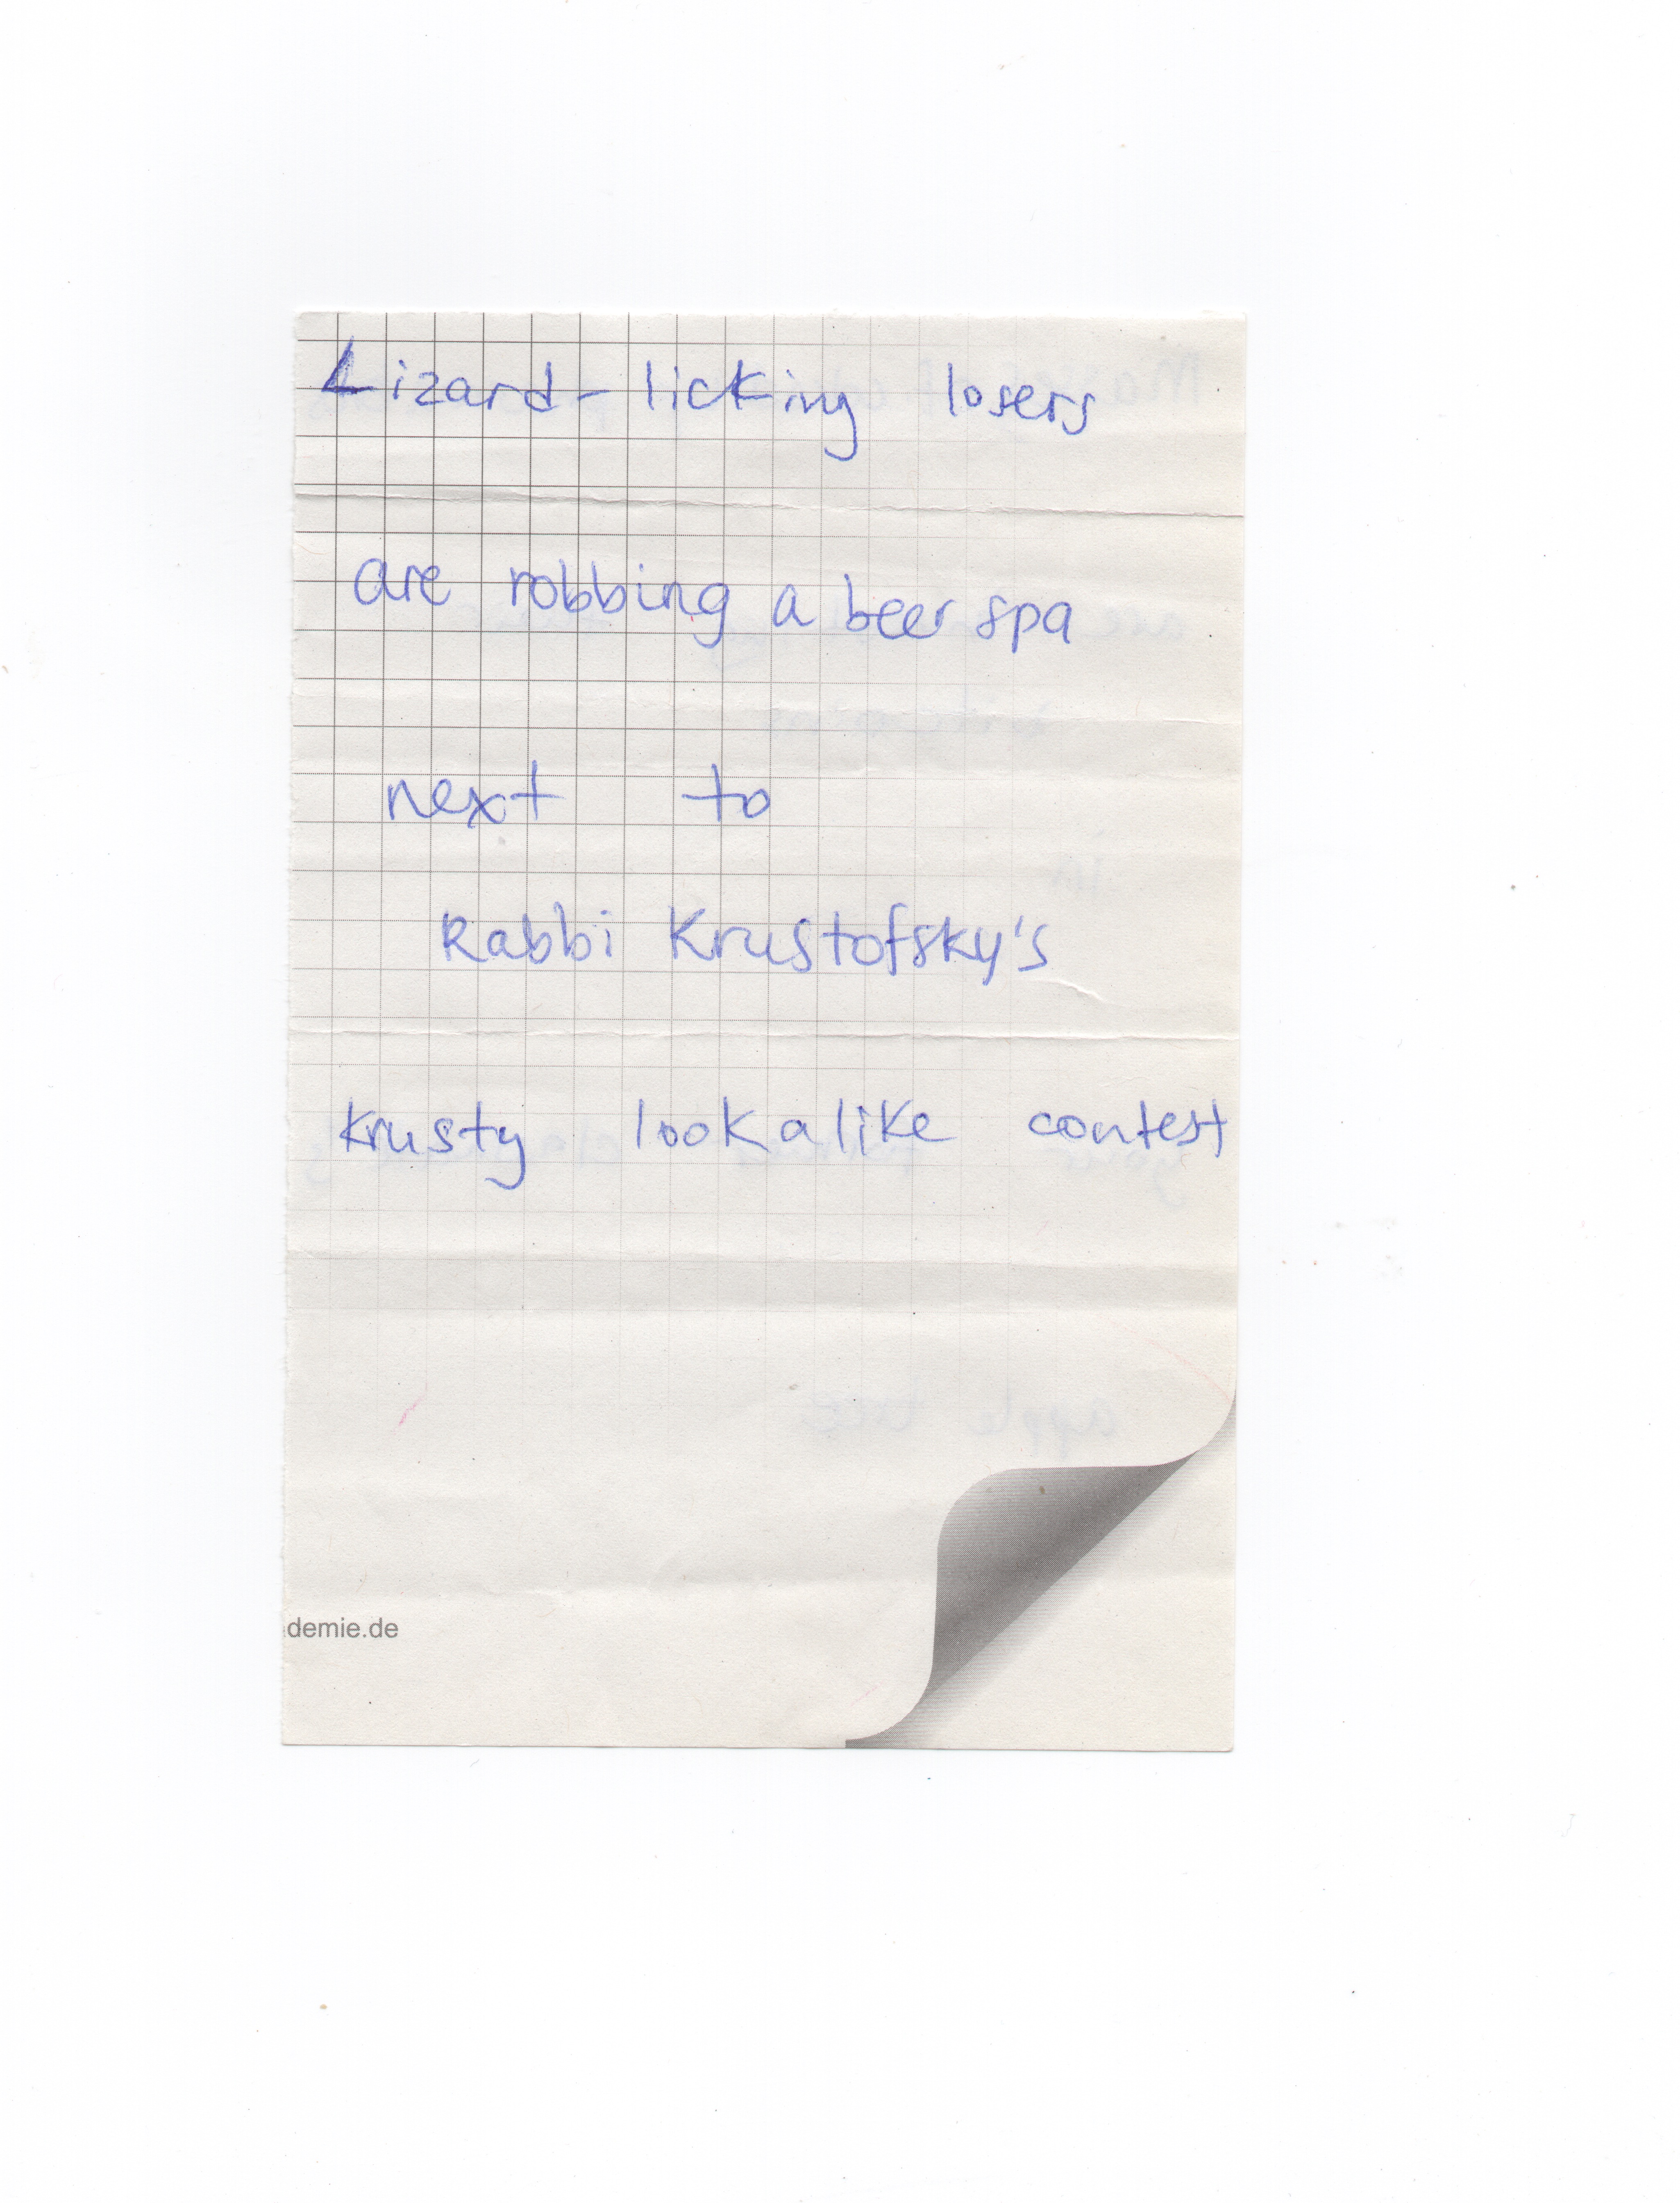 Lizard-licking losers
are robbing a beer spa
next to
Rabbi Krustofsky's
Krusty lookalike contest
demie.de